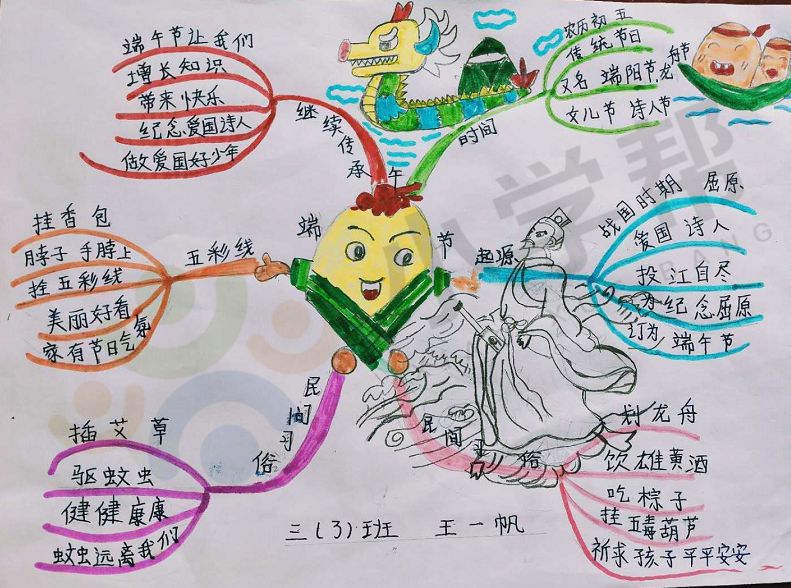 端午节
继续传承
端午节让我们
增长知识
带来快乐
纪念爱国诗人
做爱国好少年
时间
农历初五
传统节日
又名 端阳节,龙舟节
女儿节 诗人节
五彩线
挂香包
脖子 手脖上
拴五彩线
美丽好看
家有节日气氛
起源
战国时期 屈原
爱国 诗人
投江自尽
为纪念屈原
订为 端午节
民间习俗
插艾草
驱蚊虫
健健康康
蚊虫远离我们
民间习俗
划龙舟
饮雄黄酒
吃粽子
挂五毒葫芦
祈求孩子平平安安
三(3)班 王一帆
小学帮